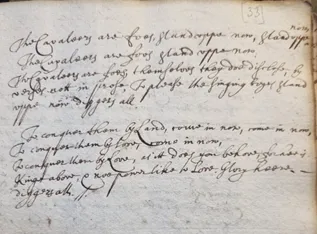 33
The Cavaleers are foes, stand uppe now, stand uppe now,
The Cavaleers are foes stand uppe now,
The Cavaleers are foes, themselves they doe disclose, by
verses not in prose to please the singing boyes stand
uppe now diggers all.
To conquer them by Land, come in now, come in now,
To conquer them by Love, come in now,
To conquer them by Love, as itt does you behove, for hee is
Kinge above, noe power like to Love, Glory heere
diggers all.